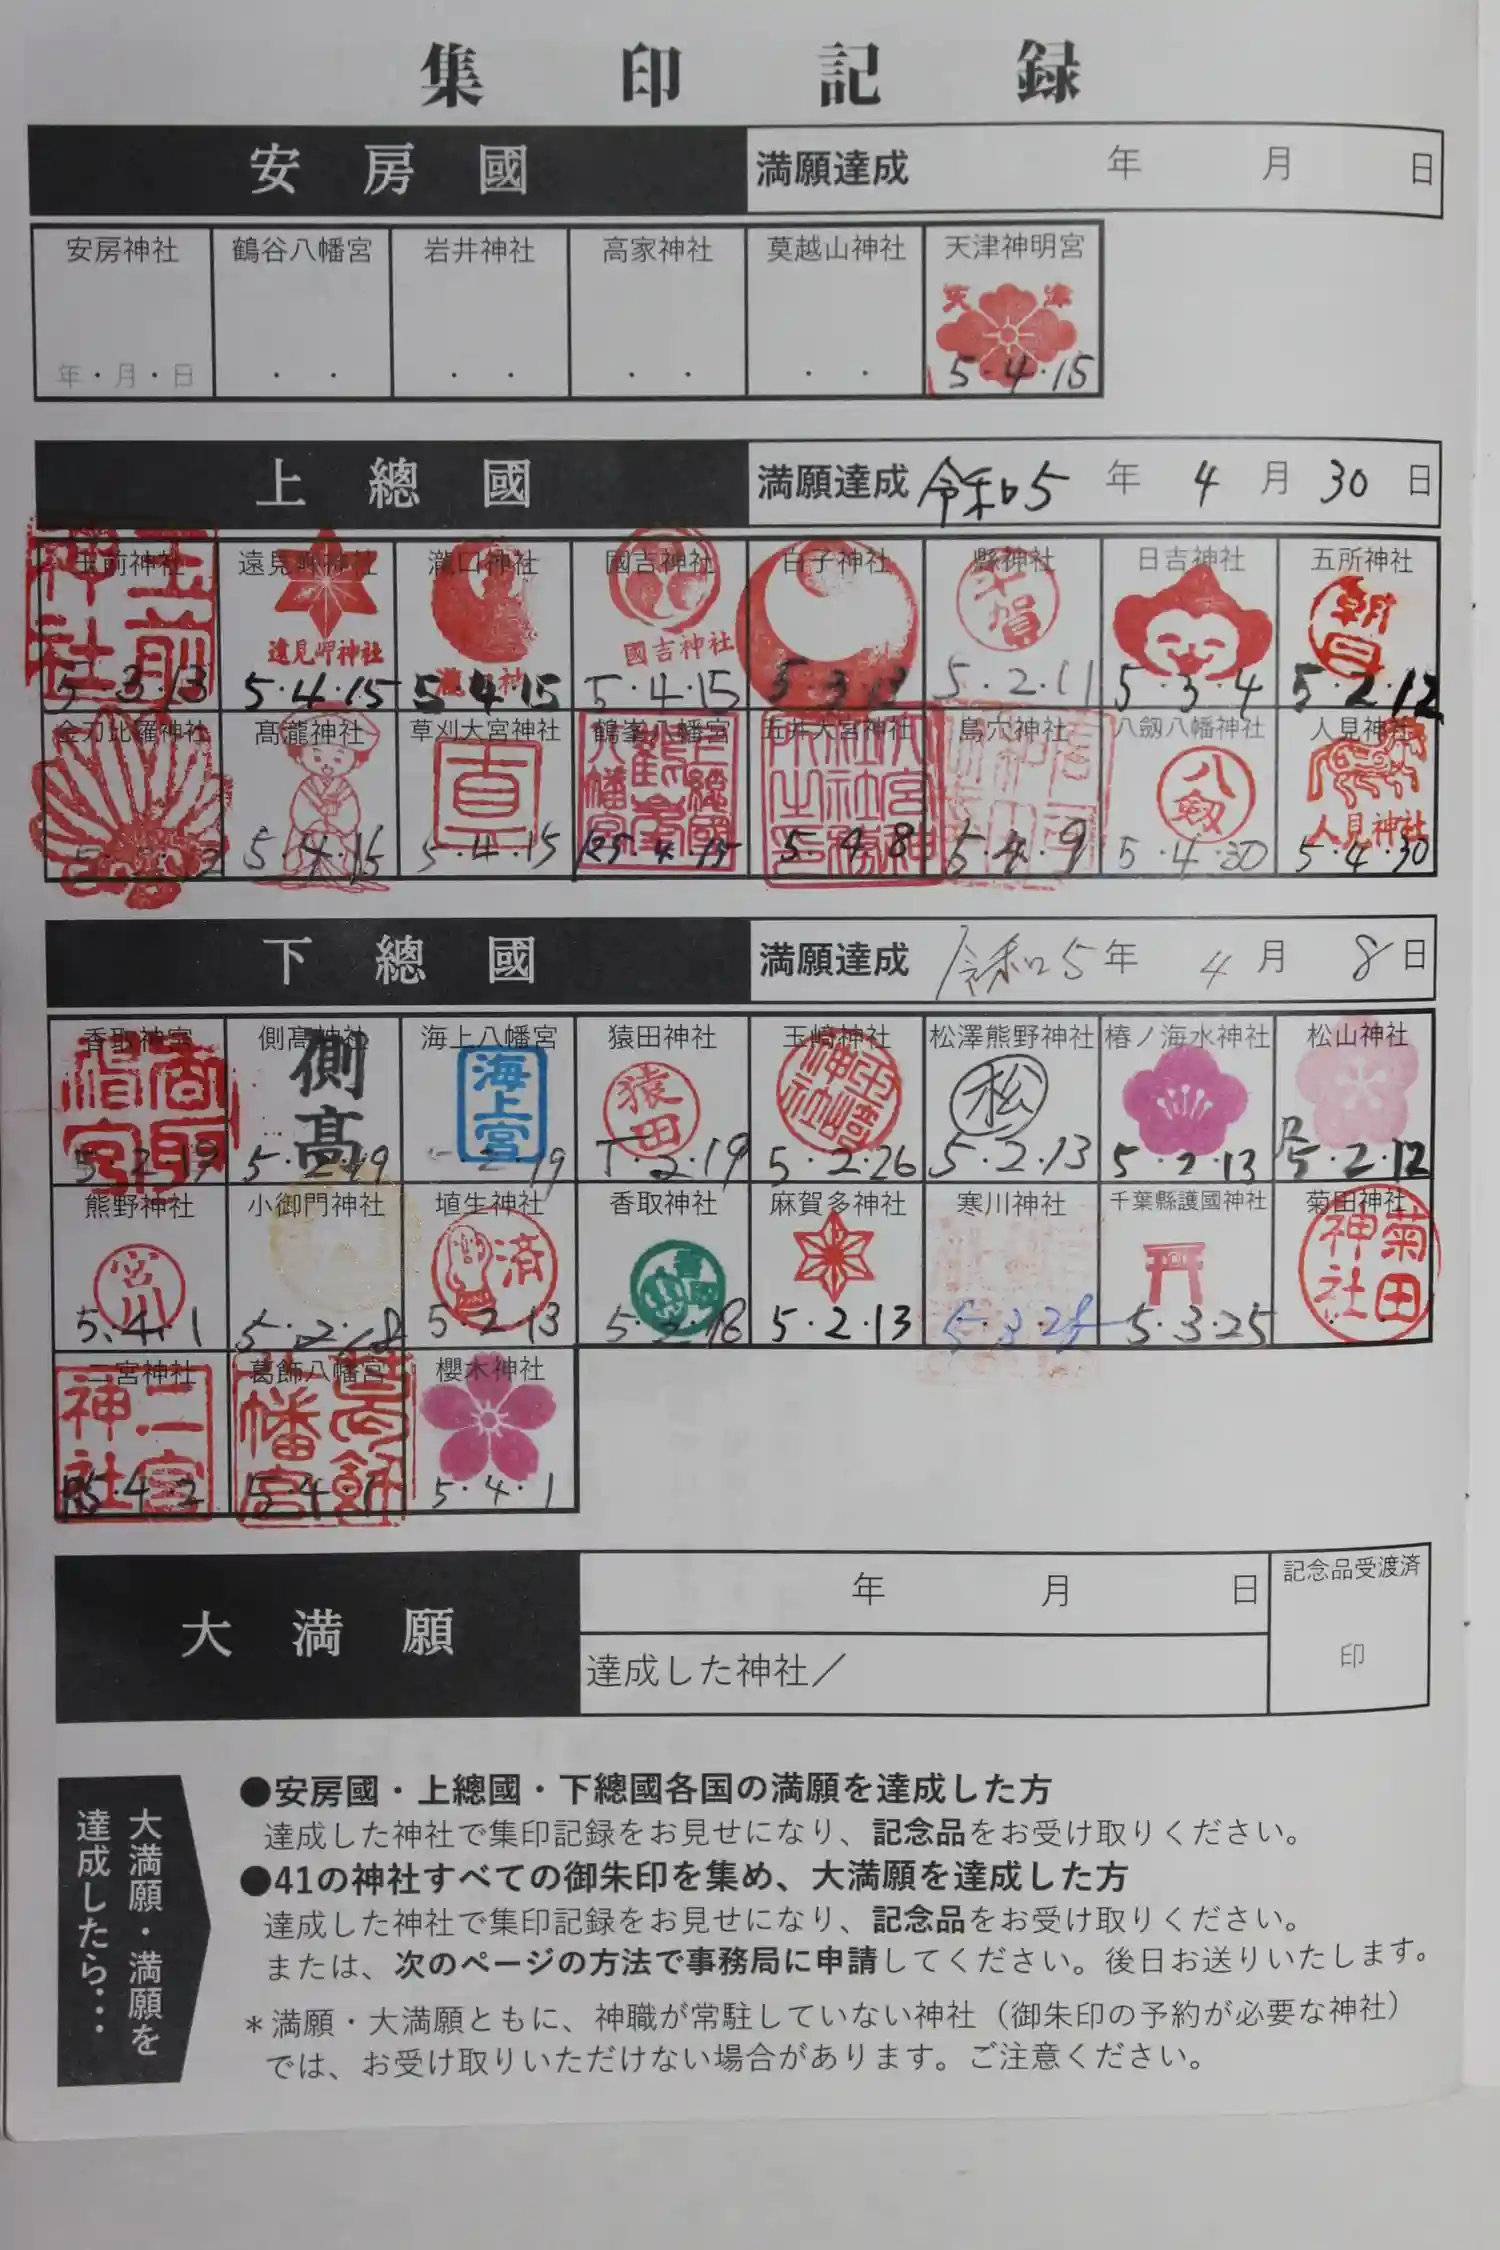 集印記録
安房國 満願達成 年 月 日
安房神社 鶴谷八幡宮 岩井神社 高家神社 莫越山神社 天津神明宮
天 津
年・月・日 ・ ・ ・ ・ ・ ・ ・ ・ 5・4・15
上總國 満願達成 令和5年 4月 30日
玉前神社 遠見岬神社 瀧口神社 國吉神社 白子神社 縣神社 日吉神社 五所神社
玉前神社 遠見岬神社 國吉神社 平賀 朝日
5・3・13 5・4・15 5・4・15 5・4・15 5・3・ 5・2・11 5・3・4 5・2・12
金刀比羅神社 髙瀧神社 草刈大宮神社 鶴峯八幡宮 五井大宮神社 島穴神社 八劔八幡神社 人見神社
直 上總國鶴峯八幡宮 八劔 人見神社
5・4・15 5・4・15 R5・4・15 5・4・8 5・4・9 5・4・30 5・4・30
下總國 満願達成 令和5年 4月 8日
香取神宮 側高神社 海上八幡宮 猿田神社 玉﨑神社 松澤熊野神社 椿ノ海水神社 松山神社
香取神宮 側高 海上宮 猿田 松
5・2・19 5・2・19 5・2・19 5・2・19 5・2・26 5・2・13 5・2・13 R5・2・12
熊野神社 小御門神社 埴生神社 香取神社 麻賀多神社 寒川神社 千葉縣護國神社 菊田神社
宮川 済 菊田神社
5.4.1 5・2・18 5 2 13 5・2・18 5・2・13 5・3・25 5・3・25
二宮神社 葛飾八幡宮 櫻木神社
二宮神社 葛飾八幡宮
R5・4・2 5・4・1 5・4・1
大満願 年 月 日 記念品受渡済
達成した神社／ 印
大満願・満願を
達成したら…
●安房國・上總國・下總國各国の満願を達成した方
達成した神社で集印記録をお見せになり、記念品をお受け取りください。
●41の神社すべての御朱印を集め、大満願を達成した方
達成した神社で集印記録をお見せになり、記念品をお受け取りください。
または、次のページの方法で事務局に申請してください。後日お送りいたします。
＊満願・大満願ともに、神職が常駐していない神社（御朱印の予約が必要な神社）
では、お受け取りいただけない場合があります。ご注意ください。